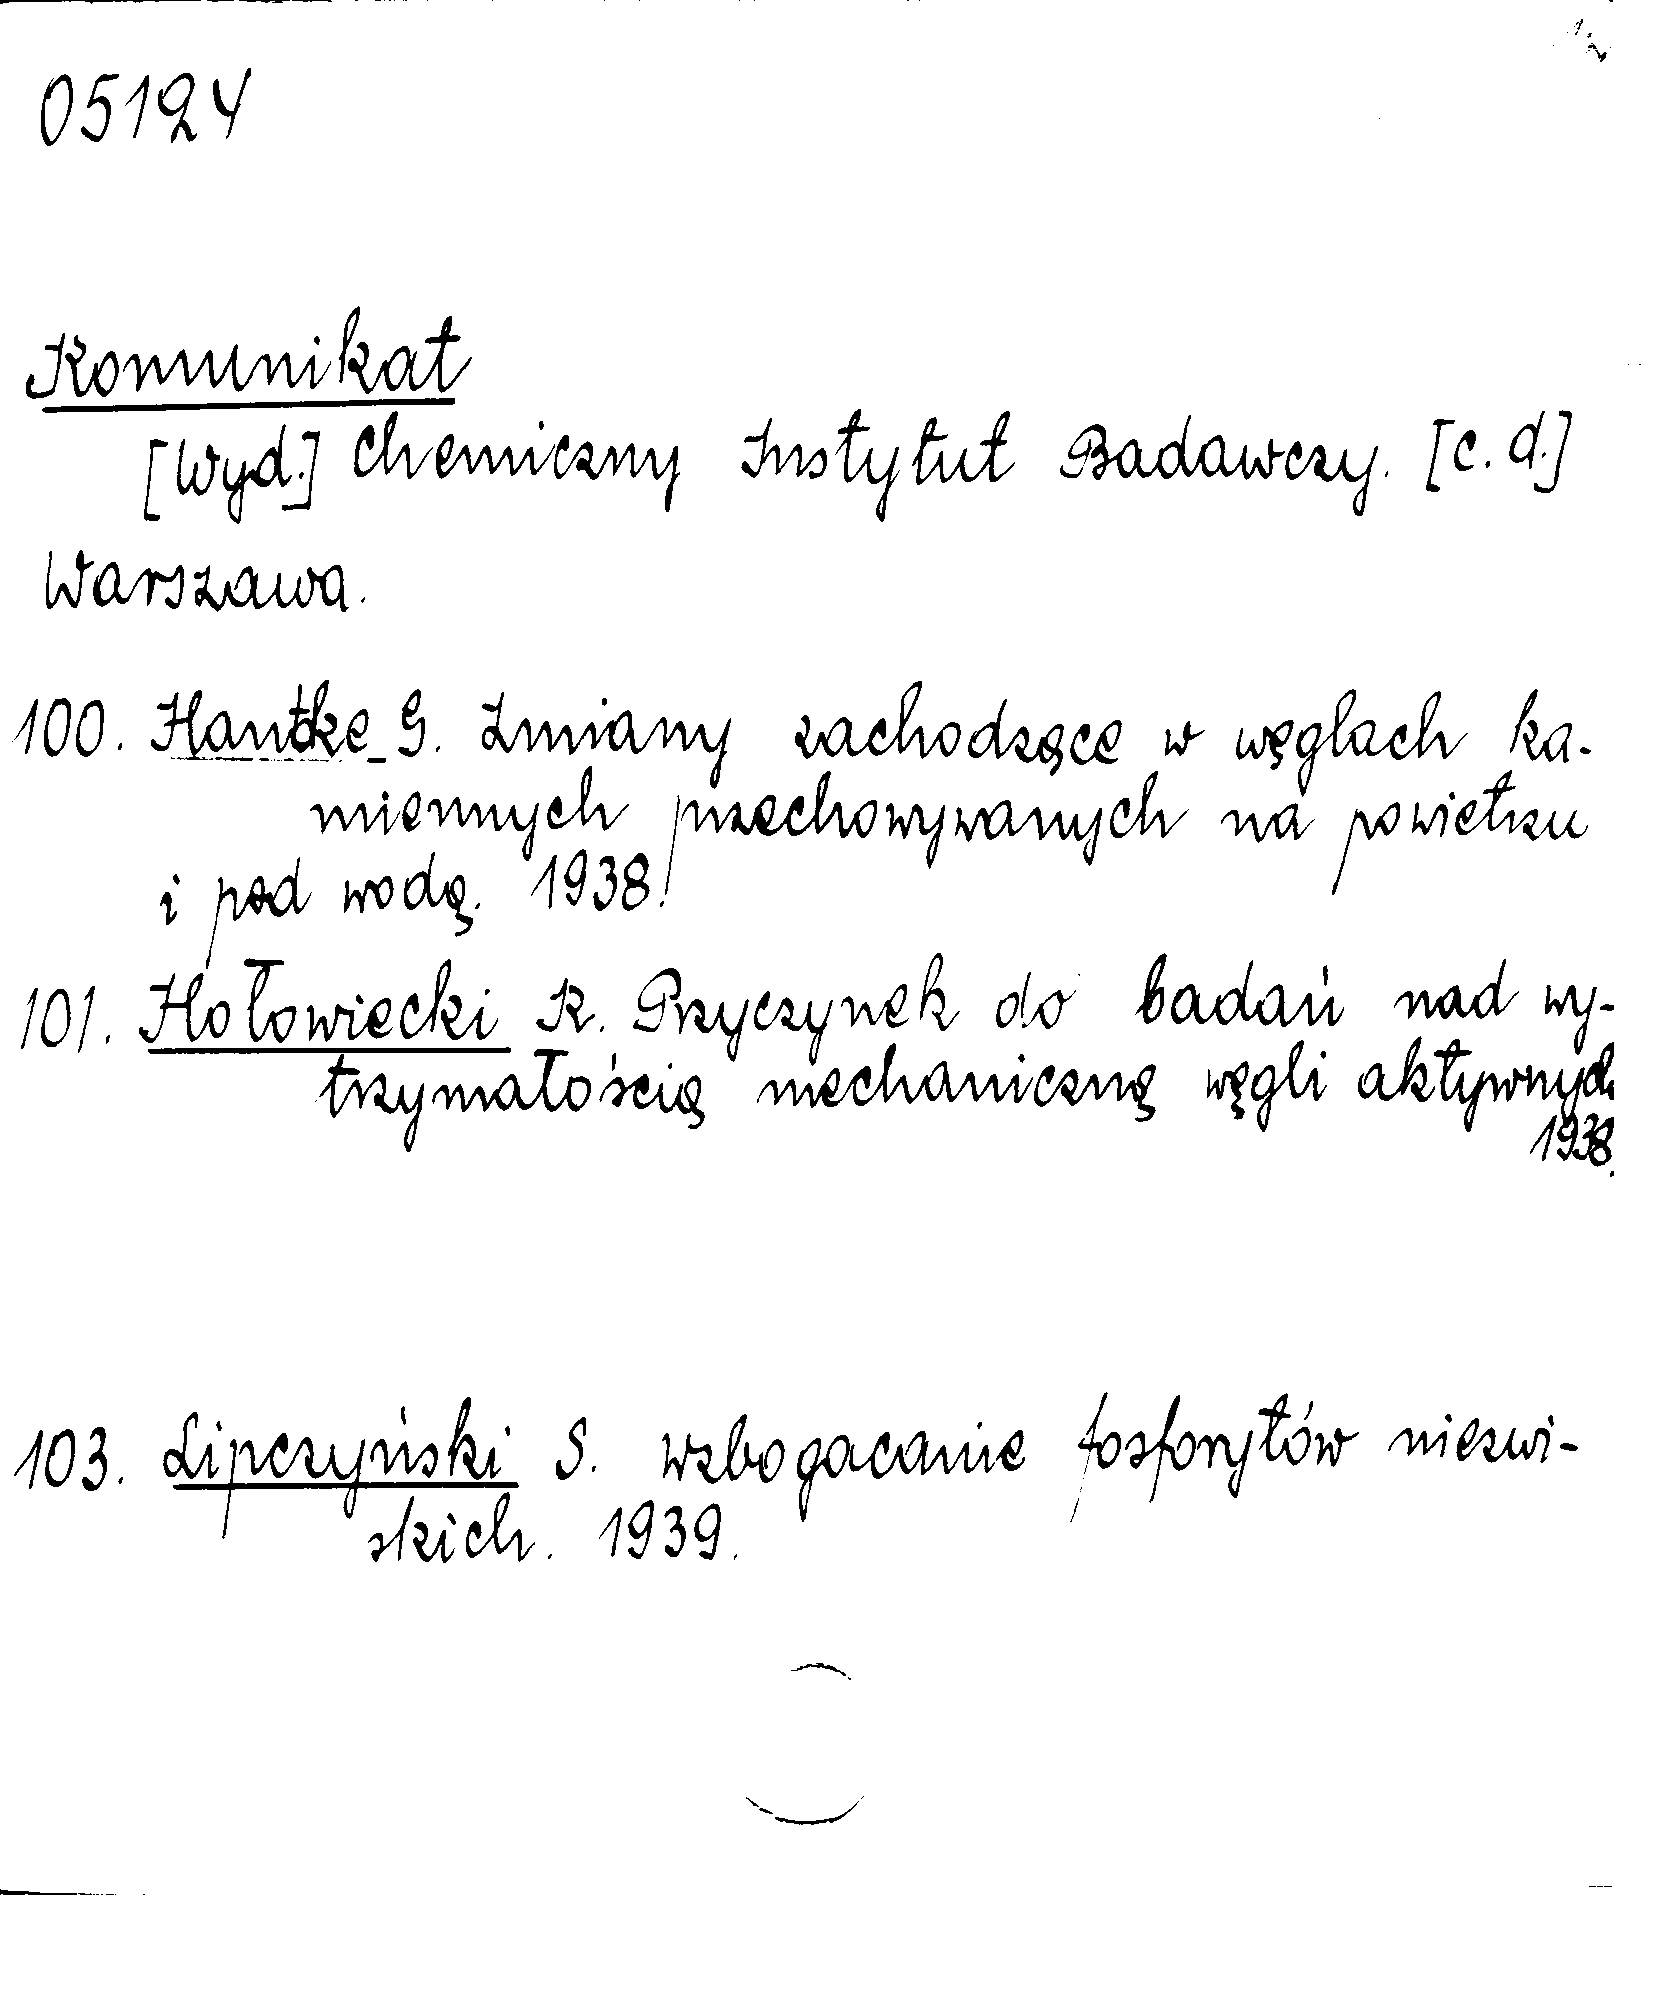 05124
Komunikat
[Wyd.] Chemiczny Instytut Badawczy. [c. d.]
Warszawa.
100. Hantke G. Zmiany zachodzące w węglach ka-
miennych przechowywanych na powietrzu
i pod wodą. 1938.
101. Hołowiecki K. Przyczynek do badań nad wy-
trzymałością mechaniczną węgli aktywnych
1938.
103. Lipczyński S. Wzbogacanie fosforytów niezwi-
skich. 1939.